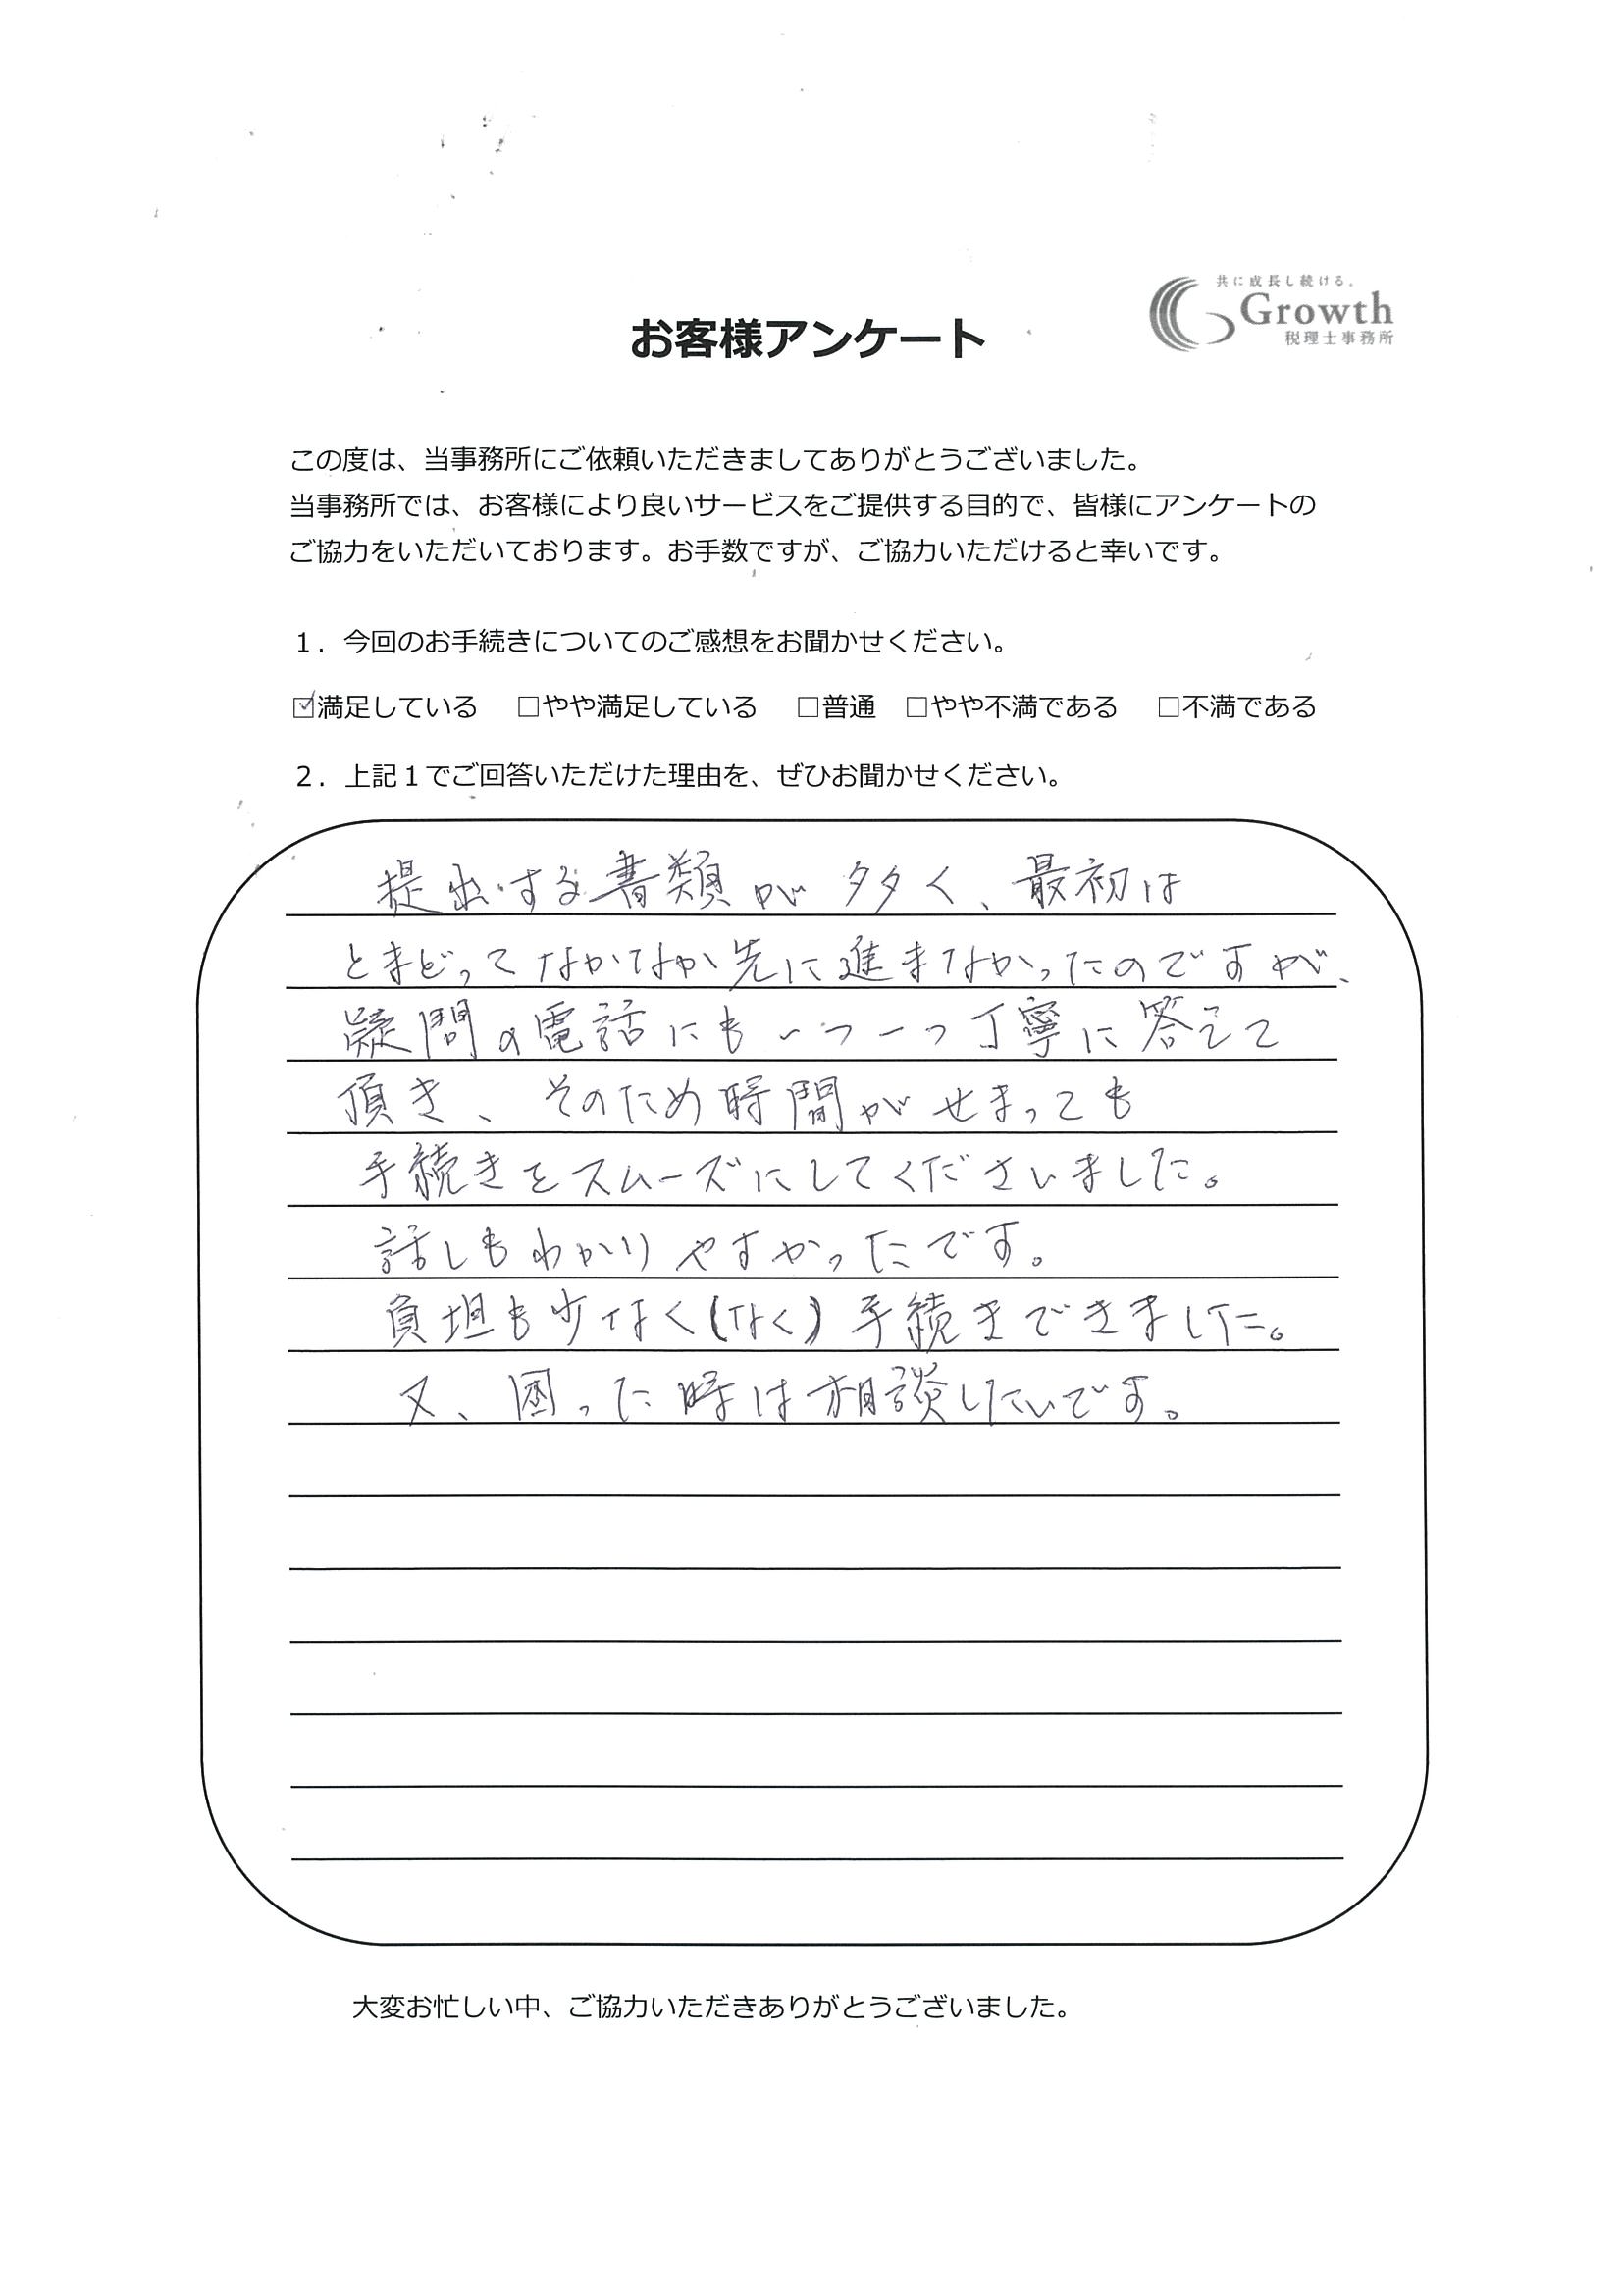 共に成長し続ける。
Growth
税理士事務所
お客様アンケート
この度は、当事務所にご依頼いただきましてありがとうございました。
当事務所では、お客様により良いサービスをご提供する目的で、皆様にアンケートの
ご協力をいただいております。お手数ですが、ご協力いただけると幸いです。
1．今回のお手続きについてのご感想をお聞かせください。
☑満足している　□やや満足している　□普通　□やや不満である　□不満である
2．上記１でご回答いただけた理由を、ぜひお聞かせください。
提出する書類が多く、最初は
とまどってなかなか先に進まなかったのですが、
疑問の電話にも一つ一つ丁寧に答えて
頂き、そのため時間がせまっても
手続きをスムーズにしてくださいました。
話しもわかりやすかったです。
負担も少なく(なく)手続きできました。
又、困った時は相談したいです。
大変お忙しい中、ご協力いただきありがとうございました。